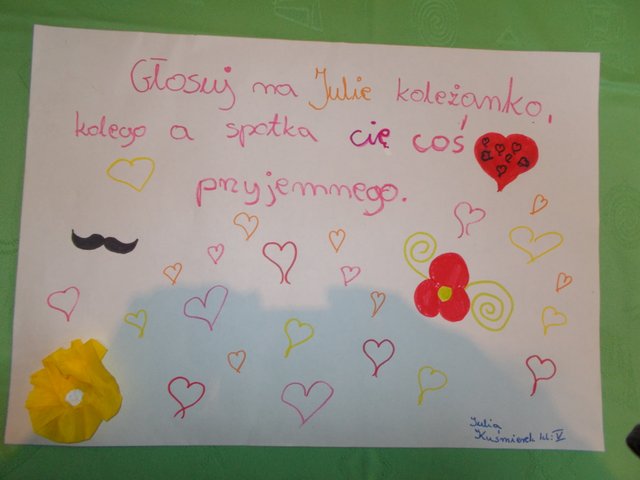 Głosuj na Julię koleżanko,
kolego a spotka cię coś
przyjemnego.
Julia
Kuśmierek kl: V